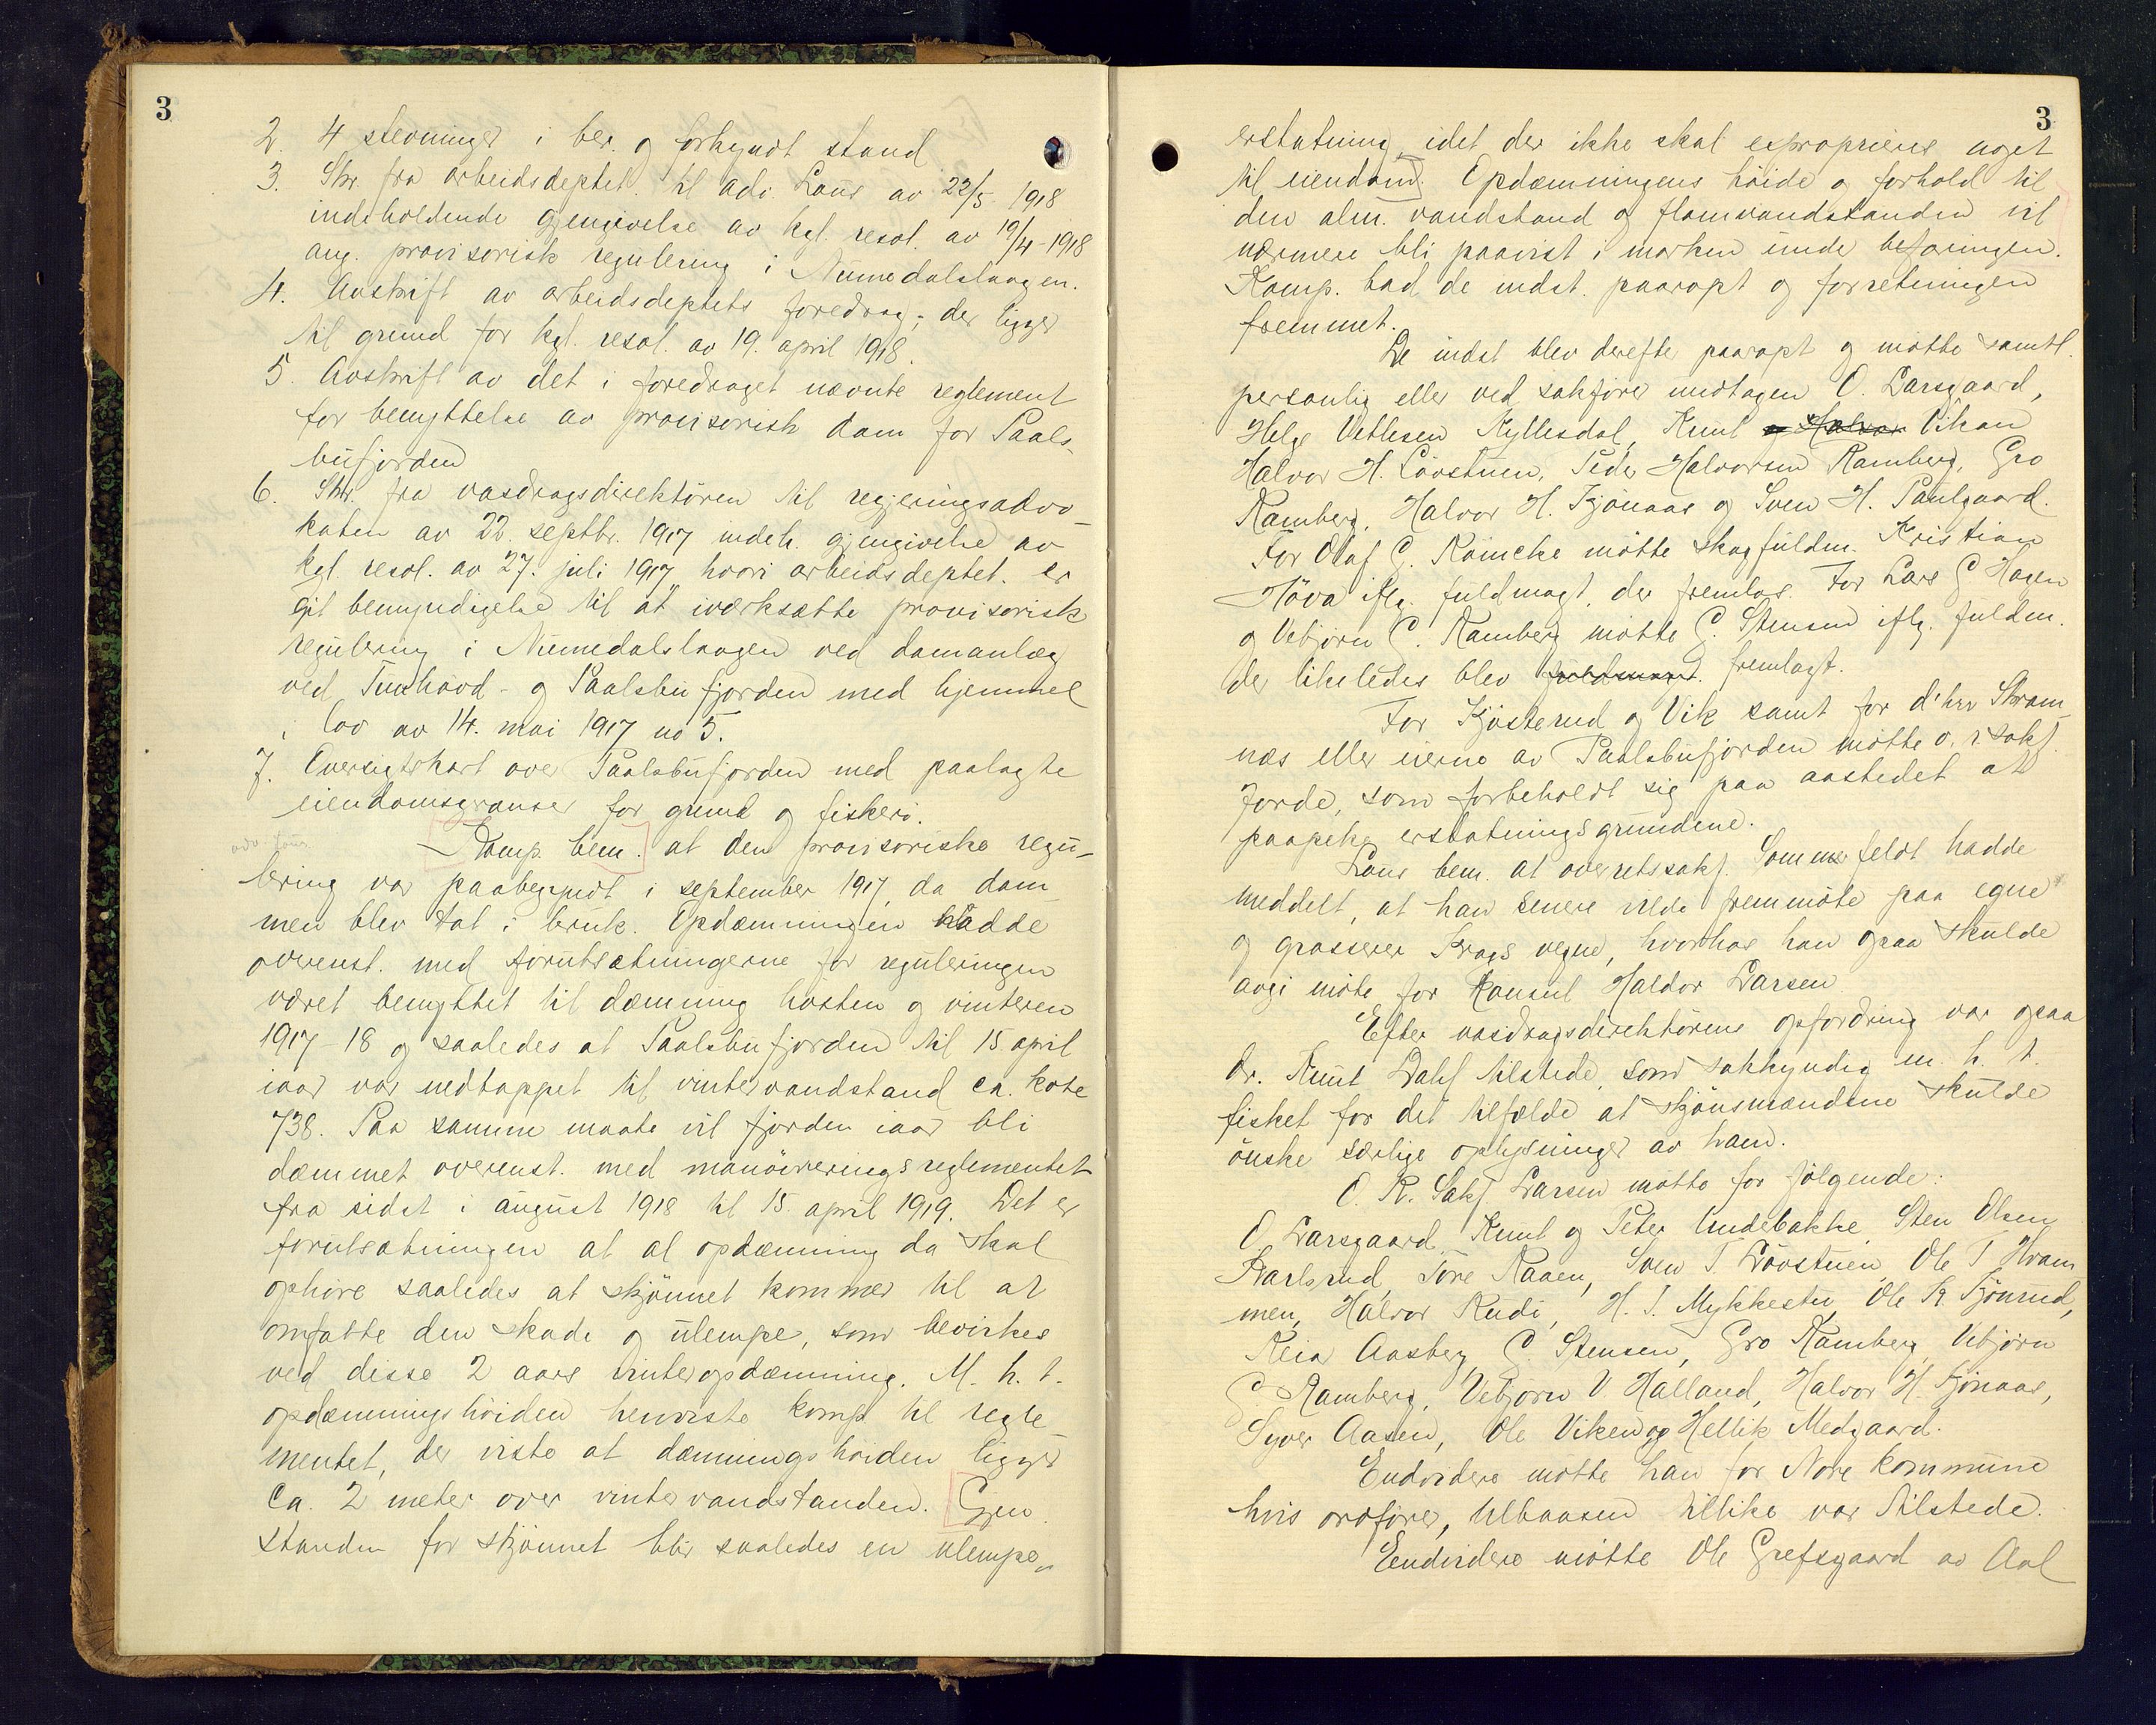 3
2. 4 stevninger i ber. og forkyndt stand
3. Skr. fra arbeidsdeptet. til adv. Lous av 22/5. 1918
indeholdende gjengivelse av kgl. resol. av 19/4-1918
ang. provisorisk regulering i Numedalslaagen.
4. Avskrift av arbeidsdeptets foredrag, der ligger
til grund for kgl. resol. av 19. april 1918.
5. Avskrift av det i foredraget nævnte reglement
for benyttelse av provisorisk dam for Paals-
bufjorden
6. Skr. fra vasdragsdirektören til regjeringsadvo-
katen av 22. septbr. 1917 indeh. gjengivelse av
kgl. resol. av 27. juli 1917, hvori arbeidsdeptet. er
git bemyndigelse til at iverksætte provisorisk
regulering i Numedalslaagen ved damanlæg
ved Tunhövd- og Paalsbufjorden med hjemmel
i lov av 14. mai 1917 no 5.
7. Oversigtskart over Paalsbufjorden med paalagte
eiendomsgrænser for grund og fiskeri.
adv. Lous.
Komp. bem. at den provisoriske regu-
lering var paabegyndt i september 1917, da dam
men blev tat i bruk. Opdæmningen hadde
overenst. med forutsætningerne for reguleringen
været benyttet til dæmning hösten og vinteren
1917-18 og saaledes at Paalsbufjorden til 15. april
iaar var nedtappet til vintervandstand ca. kote
738. Paa samme maate vil fjorden iaar bli
dæmmet overenst. med manövreringsreglementet
fra sidst i august 1918 til 15. april 1919. Det er
forutsætningen at al opdæmning da skal
ophöre saaledes at skjönnet kommer til at
omfatte den skade og ulempe, som bevirkes
ved disse 2 aars vinteropdæmning. M. h. t.
opdæmningshöiden henviste komp. til regle-
mentet, der viste at dæmningshöiden ligger
ca. 2 meter over vintervandstanden. Gjen-
standen for skjönnet blir saaledes en ulempe-
3
erstatning, idet der ikke skal exproprieres noget
til eiendom. Opdæmningens höide og forhold til
den alm. vandstand og flomvandstanden vil
nærmere bli paavist i marken under befaringen.
Komp. bad de indst. paaropt og forretningen
fremmet.
De indst blev derefter paaropt og mötte samtl.
personlig eller ved sakförer undtagen O. Larsgaard,
Helge Vetlesen Kyllesdal, Knut og Halvor Vikan
Halvor H. Lövstuen, Peder Halvorsen Ramberg, Gro
Ramberg, Halvor H. Kjönaas og Sven H. Paulgaard.
For Olaf G. Römcke mötte skogfuldm. Kristian
Höva iflg. fuldmagt, der fremlas. For Lars G Hagen
og Vebjörn G. Ramberg mötte G. Stensen iflg. fuldm.
der likeledes blev fuldmagt. fremlagt.
For Kjösterud og Vik samt for d'hrr Skram-
næs eller eierne av Paalsbufjorden mötte o. r. sakf.
Jorde, som forbeholdt sig paa aastedet at
paapeke erstatningsgrundene.
Lous bem. at overretssakf. Sommerfeldt hadde
meddelt, at han senere vilde fremmöte paa egne
og grosserer Krags vegne, hvorhos han ogsaa skulde
avgi möte for konsul Haldor Larsen.
Efter vasdragsdirektörens opfordring var ogsaa
dr. Knut Dahl tilstede, som sakkyndig m. h. t.
fisket for det tilfælde at skjönsmændene skulde
önske særlige oplysninger av ham.
O. R. Sakf. Larsen mötte for fölgende:
O. Larsgaard, Knut og Peter Undebakke, Sten Olsen
Karlsrud, Tore Raaen, Sven T. Lövstuen, Ole T Hvam
men, Halvor Rudi, H. T. Mykkestu, Ole K. Kjönrud,
Reia Aasberg, G. Stensen, Gro Ramberg, Vebjörn
G. Ramberg, Vebjörn V. Halland, Halvor H. Kjönaas,
Syver Aasen, Ole Viken og Hellik Medgaard.
Endvidere mötte han for Nore kommune
hvis ordförer, Ulbaasen tillike var tilstede.
Eendvidere mötte Ole Grefsgaard av Aal